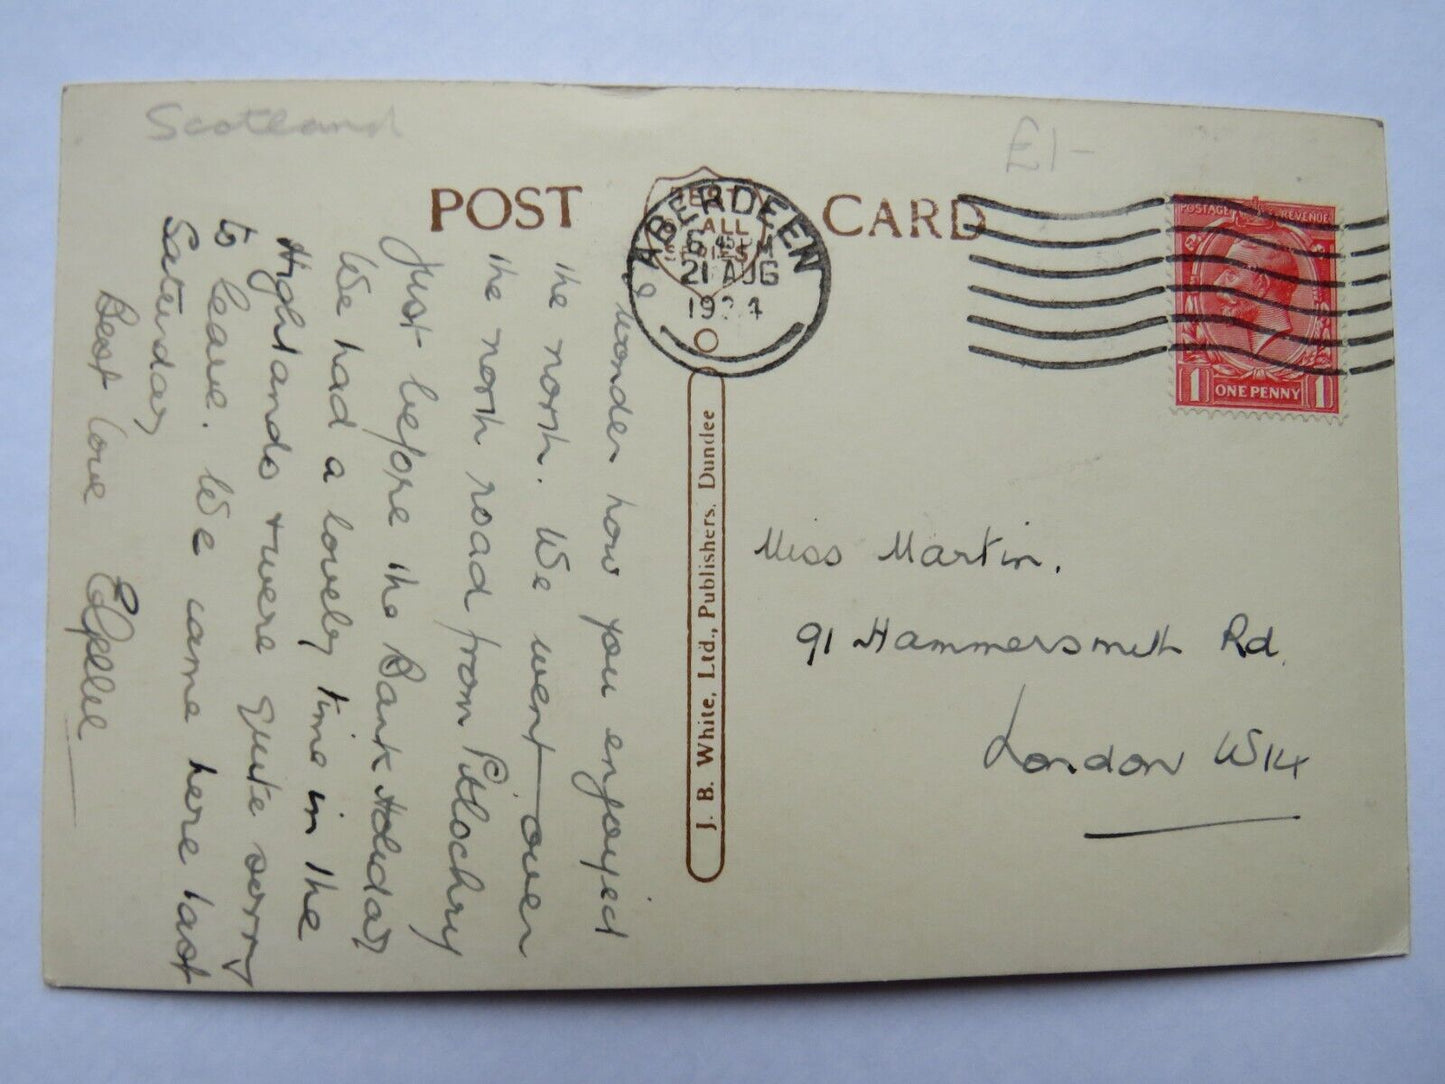 Scotland
£1-
POST CARD
BEST
OF ALL
SERIES
ABERDEEN
6 45 PM
21 AUG
19 4
POSTAGE REVENUE
1 ONE PENNY 1
J. B. White, Ltd., Publishers, Dundee
I wonder how you enjoyed
the north. We went over
the north road from Pitlochry
just before the Bank Holiday
We had a lovely time in the
Highlands + were quite sorry
to leave. We came here last
Saturday
Best love
Miss Martin.
91 Hammersmith Rd.
London W14